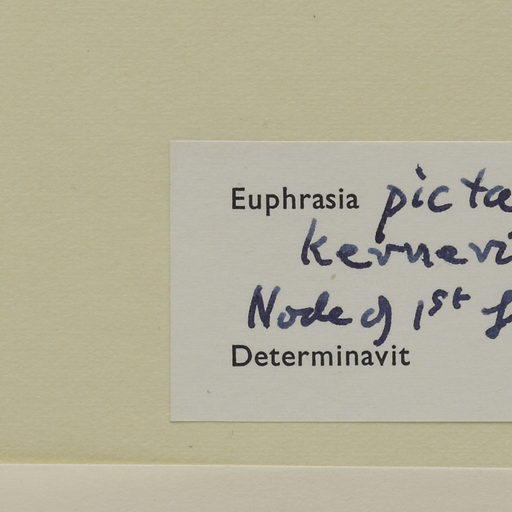 Euphrasia picta
kerneri
Node of 1st f
Determinavit